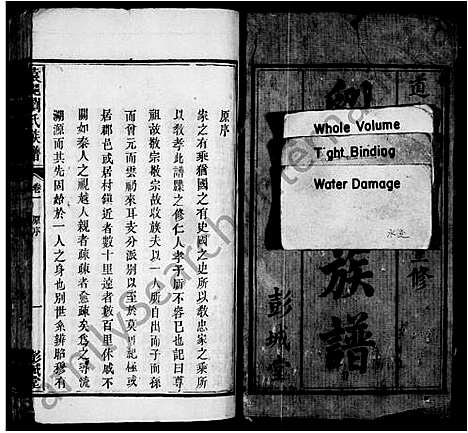 原序
家之有乘猶國之有史國之史所以教忠家之乘所
以教孝此譜牒之修仁人孝子所不容已也記曰尊
祖故敬宗敬宗故收族夫以一人所自出而子而孫
而曾元而雲礽來耳支分派别以至於莫可紀極或
居郡邑或居村鎮近者數十里遠者數百里休戚不
關如秦人之視越人親者疎疎者愈疎矣為之尋流
溯源而其先固始於一人之身也别世系辨昭穆有
氏族譜
卷一
原序
一
彭城堂
Whole Volume
Tight Binding
Water Damage
重修
族譜
彭城堂
familysearch